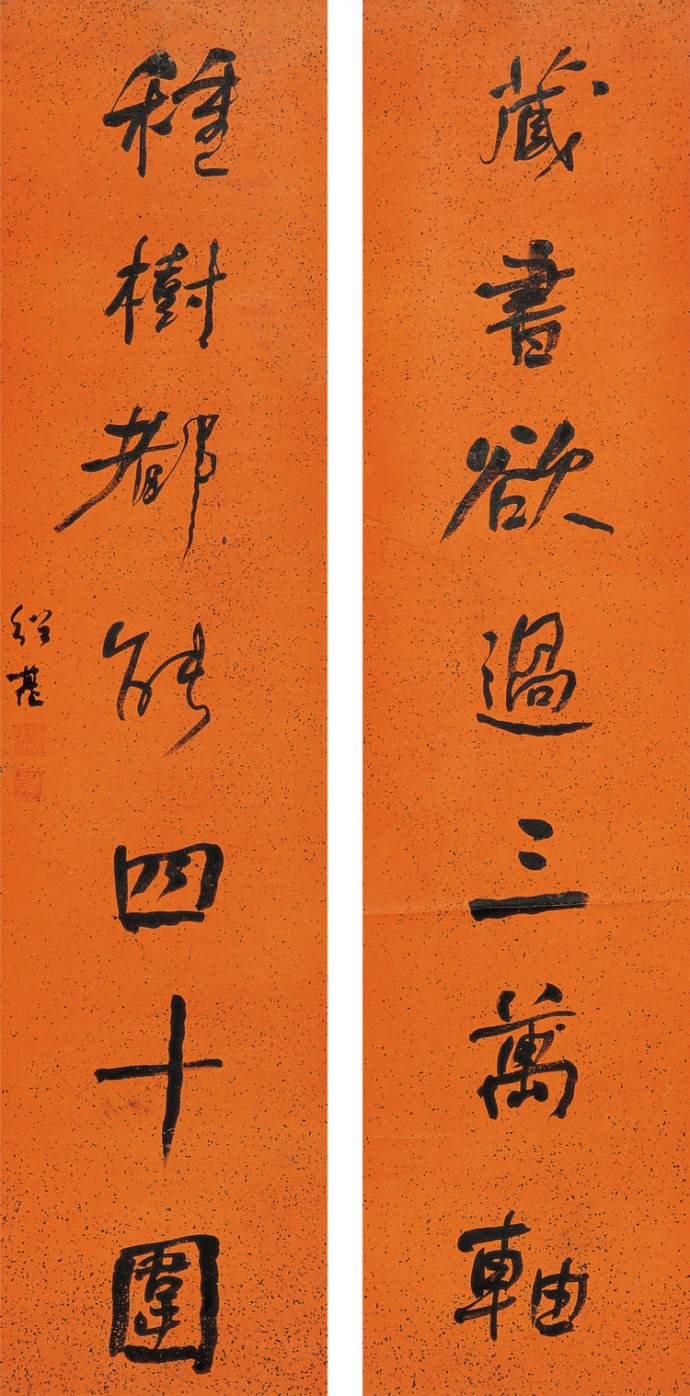 藏書欲過三萬軸
種樹都能四十圍